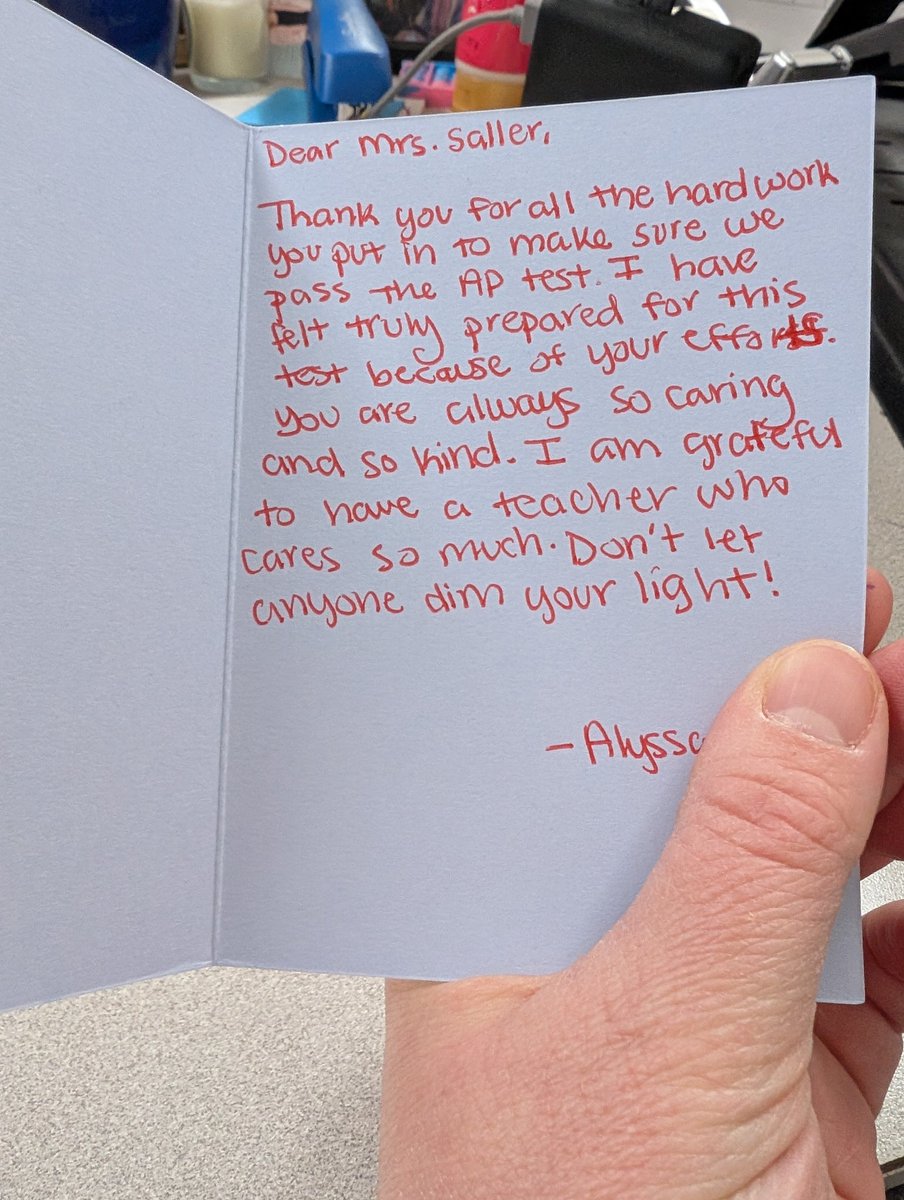 Dear Mrs. Saller,
Thank you for all the hard work
you put in to make sure we
pass the AP test. I have
felt truly prepared for this
test because of your efforts.
You are always so caring
and so kind. I am grateful
to have a teacher who
cares so much. Don't let
anyone dim your light!
- Alyssa